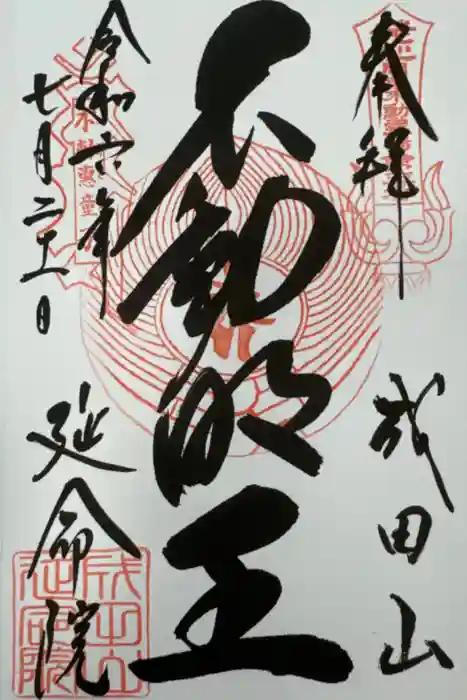 奉拝
成田山
不動明王
令和六年
七月二十一日
延命院